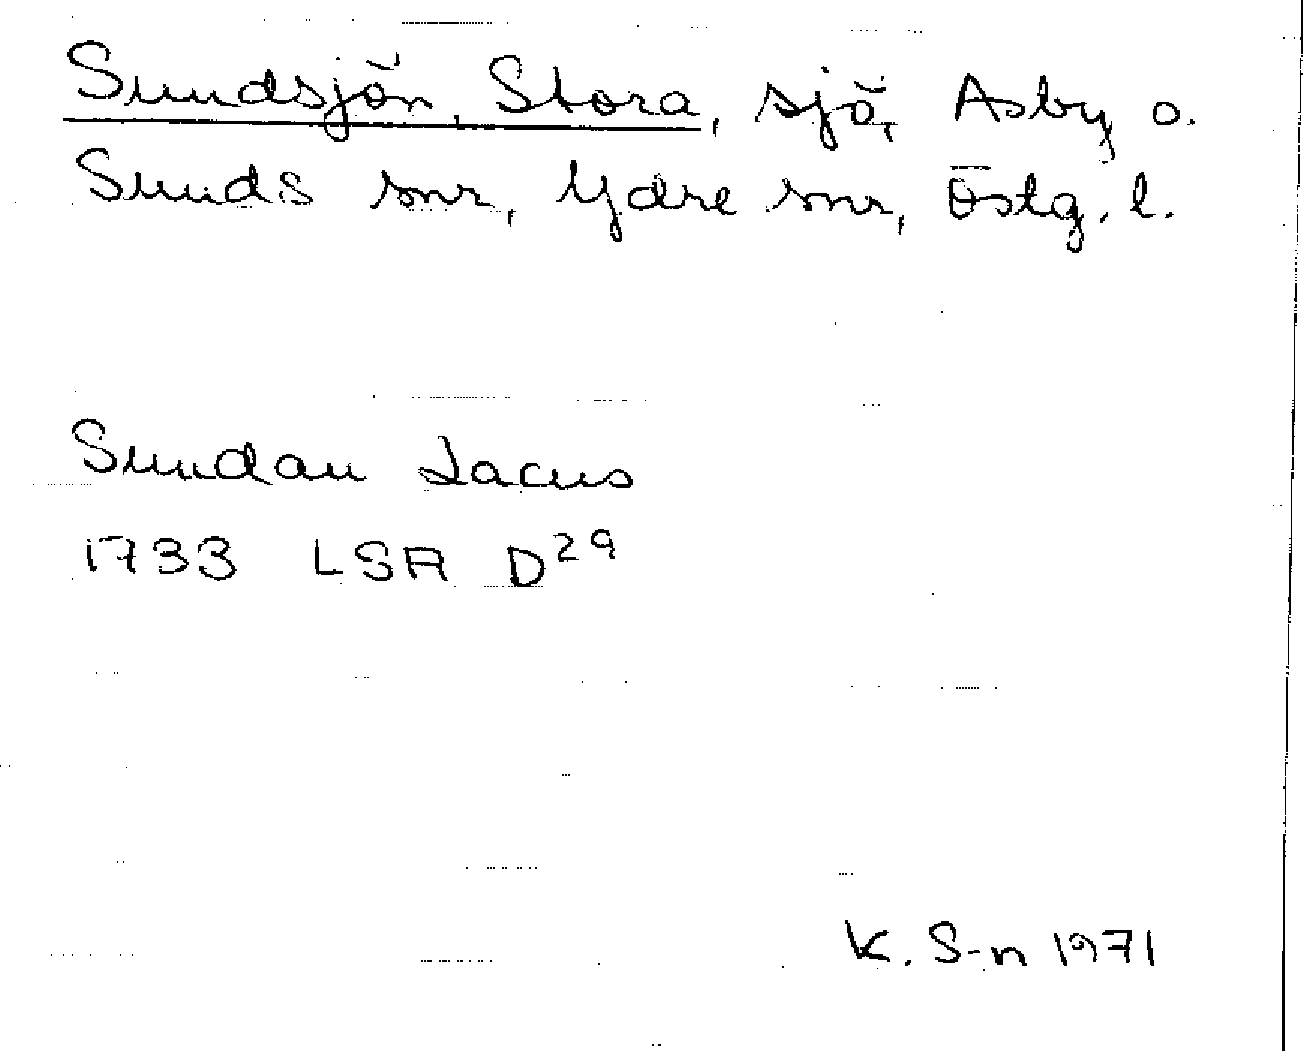 Sundsjön, Stora, sjö, Asby o.
Sunds snr, Ydre snr, Östg. l.
Sundau Lacus
1733 LSA D29
K. S-n 1971